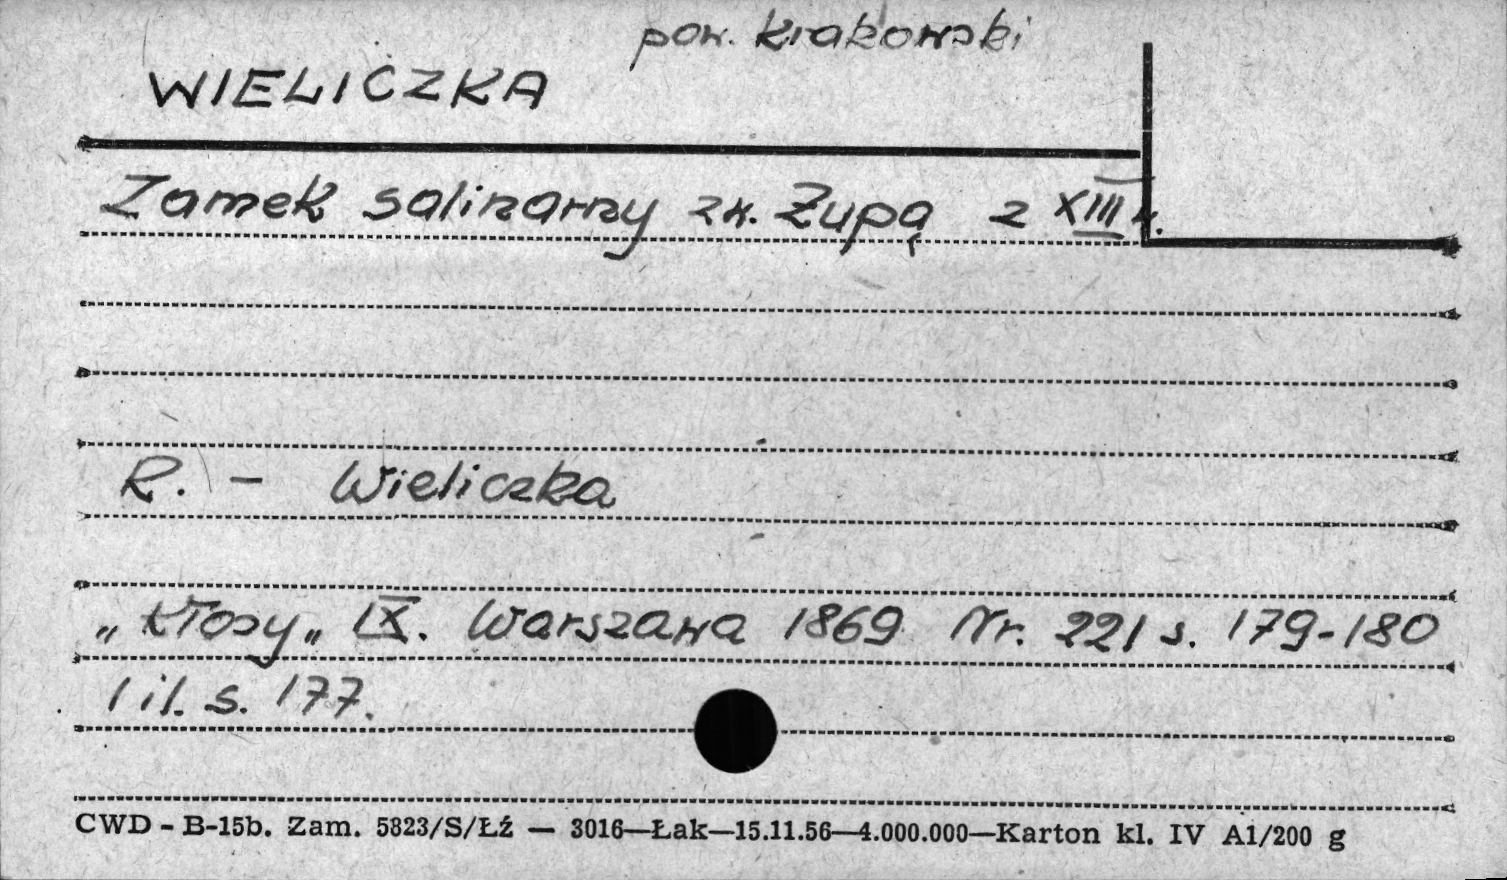 pow. krakowski
WIELICZKA
Zamek salinarny zw. Żupą z XIII w.
R. - Wieliczka
„Kłosy„ IX. Warszawa 1869 Nr. 221 s. 179-180
1 il. s. 177.
CWD - B-15b. Zam. 5823/S/Łź — 3016—Łak—15.11.56—4.000.000—Karton kl. IV A1/200 g